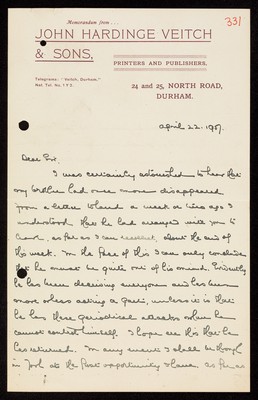 331
Memorandum from ...
JOHN HARDINGE VEITCH
& SONS,
PRINTERS AND PUBLISHERS.
Telegrams: "Veitch, Durham."
Nat. Tel. No. 173.
24 and 25, NORTH ROAD,
DURHAM.
April 22. 1907.
Dear Sir.
I was certainly astonished to hear that
my brother had once more disappeared
from a letter I had a week or two ago I
understood that he had arranged with you to
leave, as far as I can recollect, about the end of
this week. In the face of this I can only conclude
that he must be quite out of his mind. Evidently
he has been deceiving everyone and has been
more or less acting a part, unless it is that
he has these periodical attacks when he
cannot control himself. I hope ere this that he
has returned. In any event I shall be through
in York at the first opportunity I have as far as